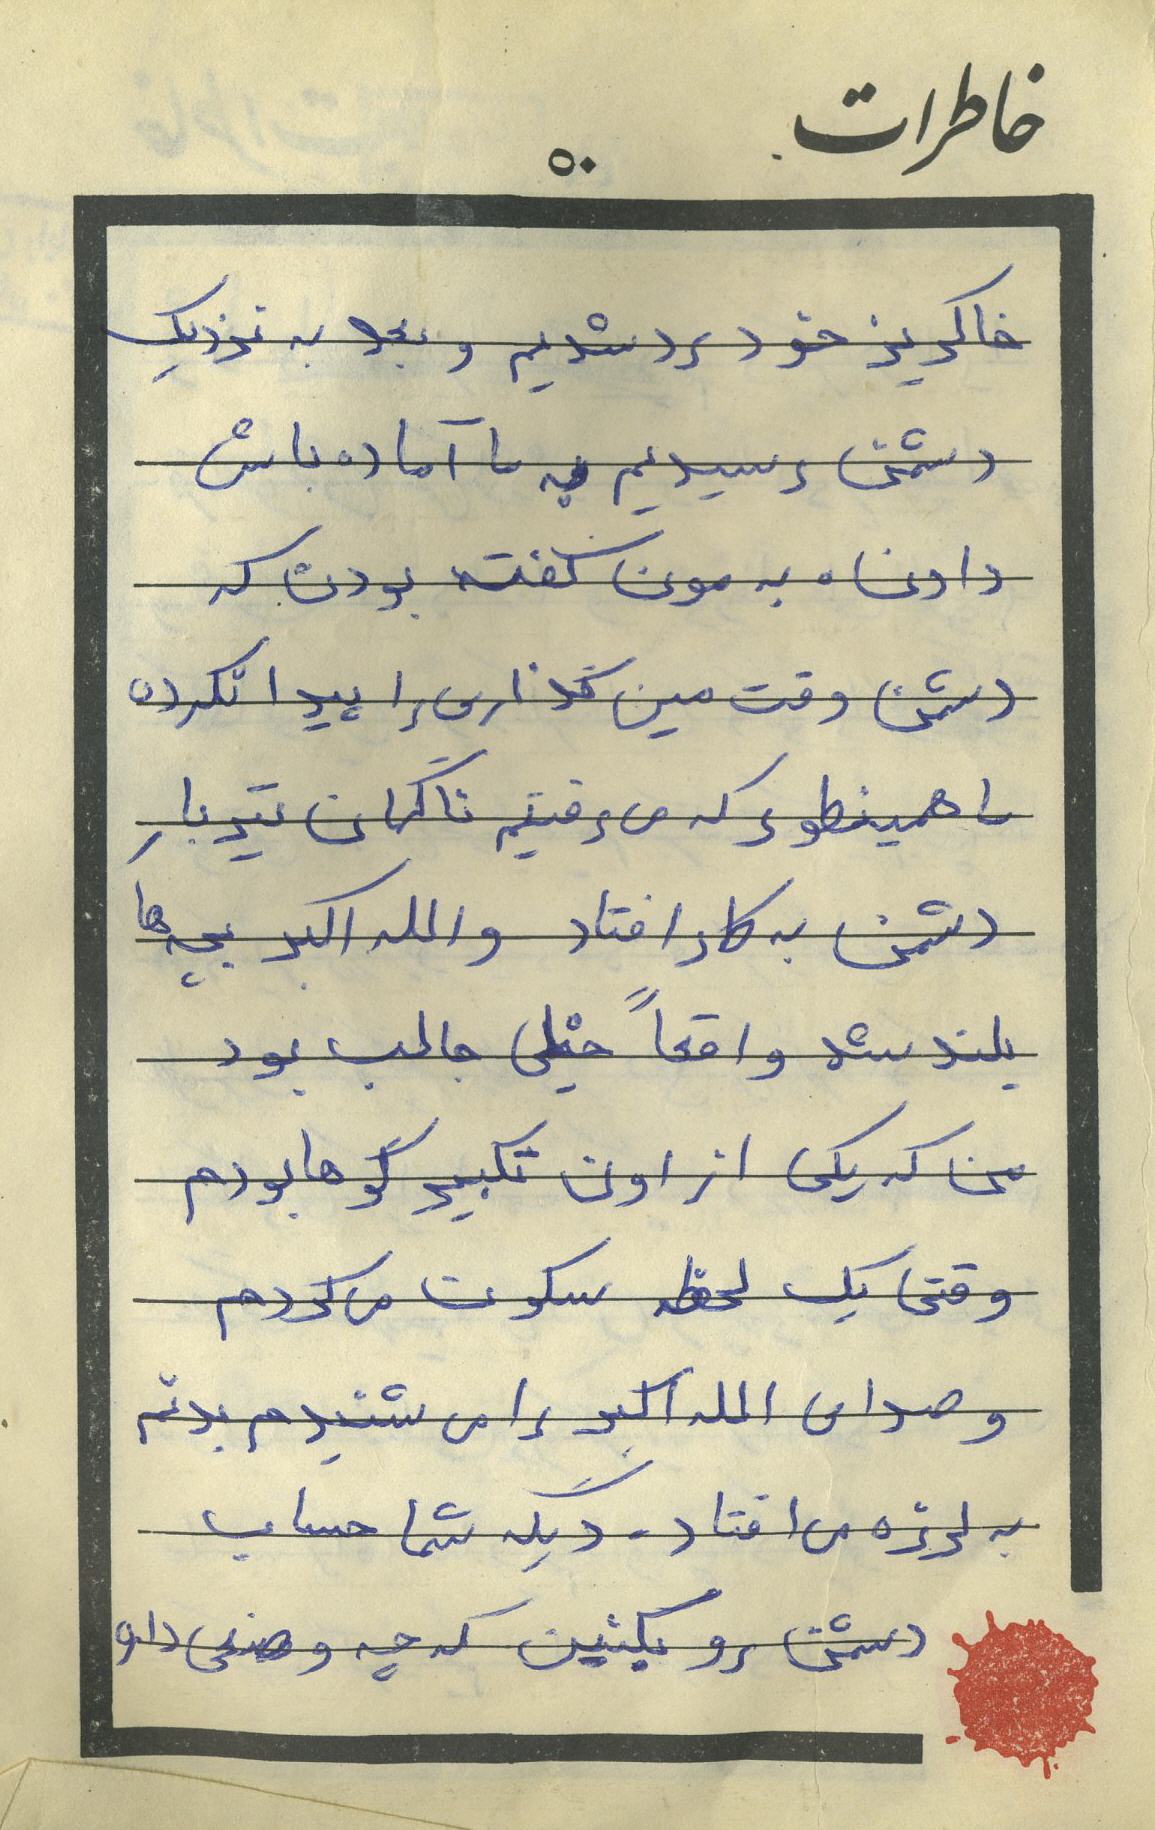 خاطرات
۵۰
خاکریز خود رد شدیم و بعد به نزدیک
دشمن رسیدیم به ما آماده باش
دادن اه به مون گفته بودن که
دشمن وقت مین گذاری را پیدا نکرده
ما همینطور که می رفتیم ناگهان تیربار
دشمن به کار افتاد و الله اکبر بچه ها
بلند شد واقعاً خیلی جالب بود
من که یکی از اون تکبیر گو ها بودم
وقتی یک لحظه سکوت می کردم
و صدای الله اکبر را می شنیدم بدنم
به لرزه می افتاد - دیگه شما حساب
دشمن رو بکنین که چه وضعی داره